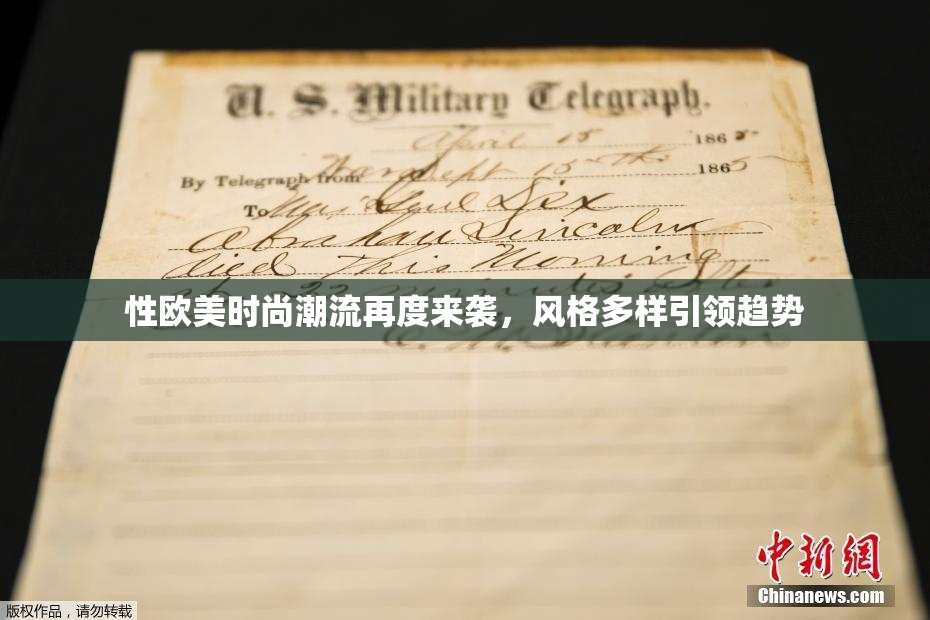 U. S. Military Telegraph.
April 15 1865-
By Telegraph from War Dept 15th 1865
To Maj Genl Dix
Abraham Lincoln
died This Morning
22 minutes after
性欧美时尚潮流再度来袭，风格多样引领趋势
E. M. Stanton
中新網
Chinanews.com
版权作品，请勿转载